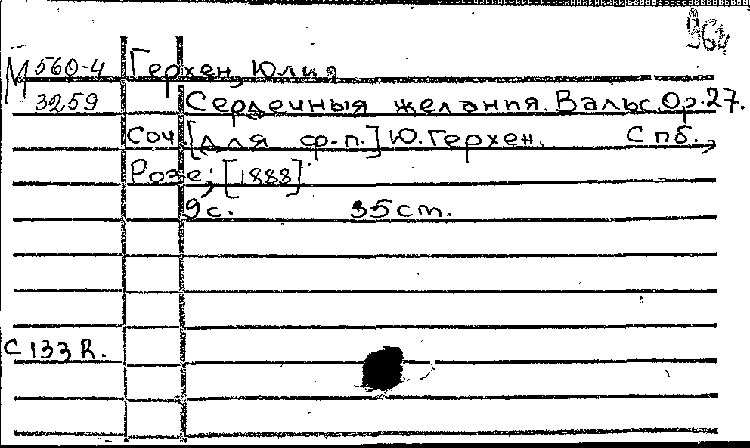 964
М 560-4 Герхен, Юлия
3259 Сердечныя желания. Вальс. Op. 27.
Соч. [для ф.-п.] Ю. Герхен. Спб.,
Розе, [1888]
9 с. 35 см.
С 133 R.